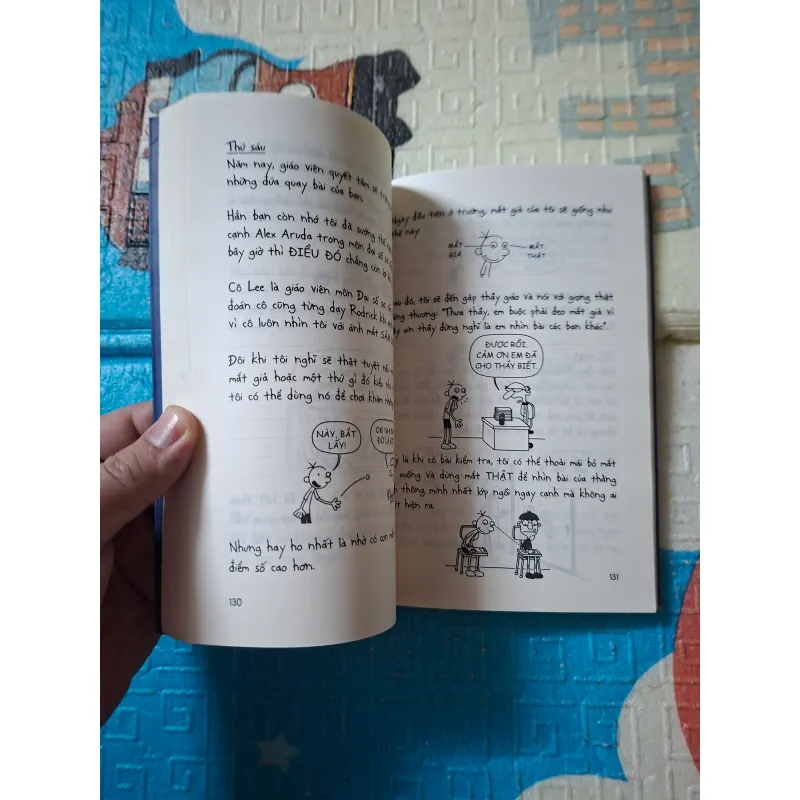 Thứ sáu
Năm nay, giáo viên quyết tâm sẽ
những đứa quay bài của bạn.
Hẳn bạn còn nhớ tôi đã sướng thế
cạnh Alex Aruda trong môn đại số sơ
bây giờ thì ĐIỀU ĐÓ chẳng còn
Cô Lee là giáo viên môn Đại số sơ
đoán cô cũng từng dạy Rodrick khi
vì cô luôn nhìn tôi với ánh mắt
Đôi khi tôi nghĩ sẽ thật tuyệt
mắt giả hoặc một thứ gì đó kiểu
tôi có thể dùng nó để chơi khăm
NÀY, BẮT
LẤY!
Nhưng hay ho nhất là nhờ có con
điểm số cao hơn.
130
Ngày đầu tiên ở trường, mắt giả của tôi sẽ giống như
thế này.
MẮT
GIẢ
MẮT
THẬT
đó, tôi sẽ đến gặp thầy giáo và nói với giọng thật
thương: "Thưa thầy, em buộc phải đeo mắt giả vì
xin thầy đừng nghĩ là em nhìn bài các bạn khác".
ĐƯỢC RỒI,
CẢM ƠN EM ĐÃ
CHO THẦY BIẾT.
là khi có bài kiểm tra, tôi có thể thoải mái bỏ mắt
xuống và dùng mắt THẬT để nhìn bài của thằng
thông minh nhất lớp ngồi ngay cạnh mà không ai
hiện ra.
131